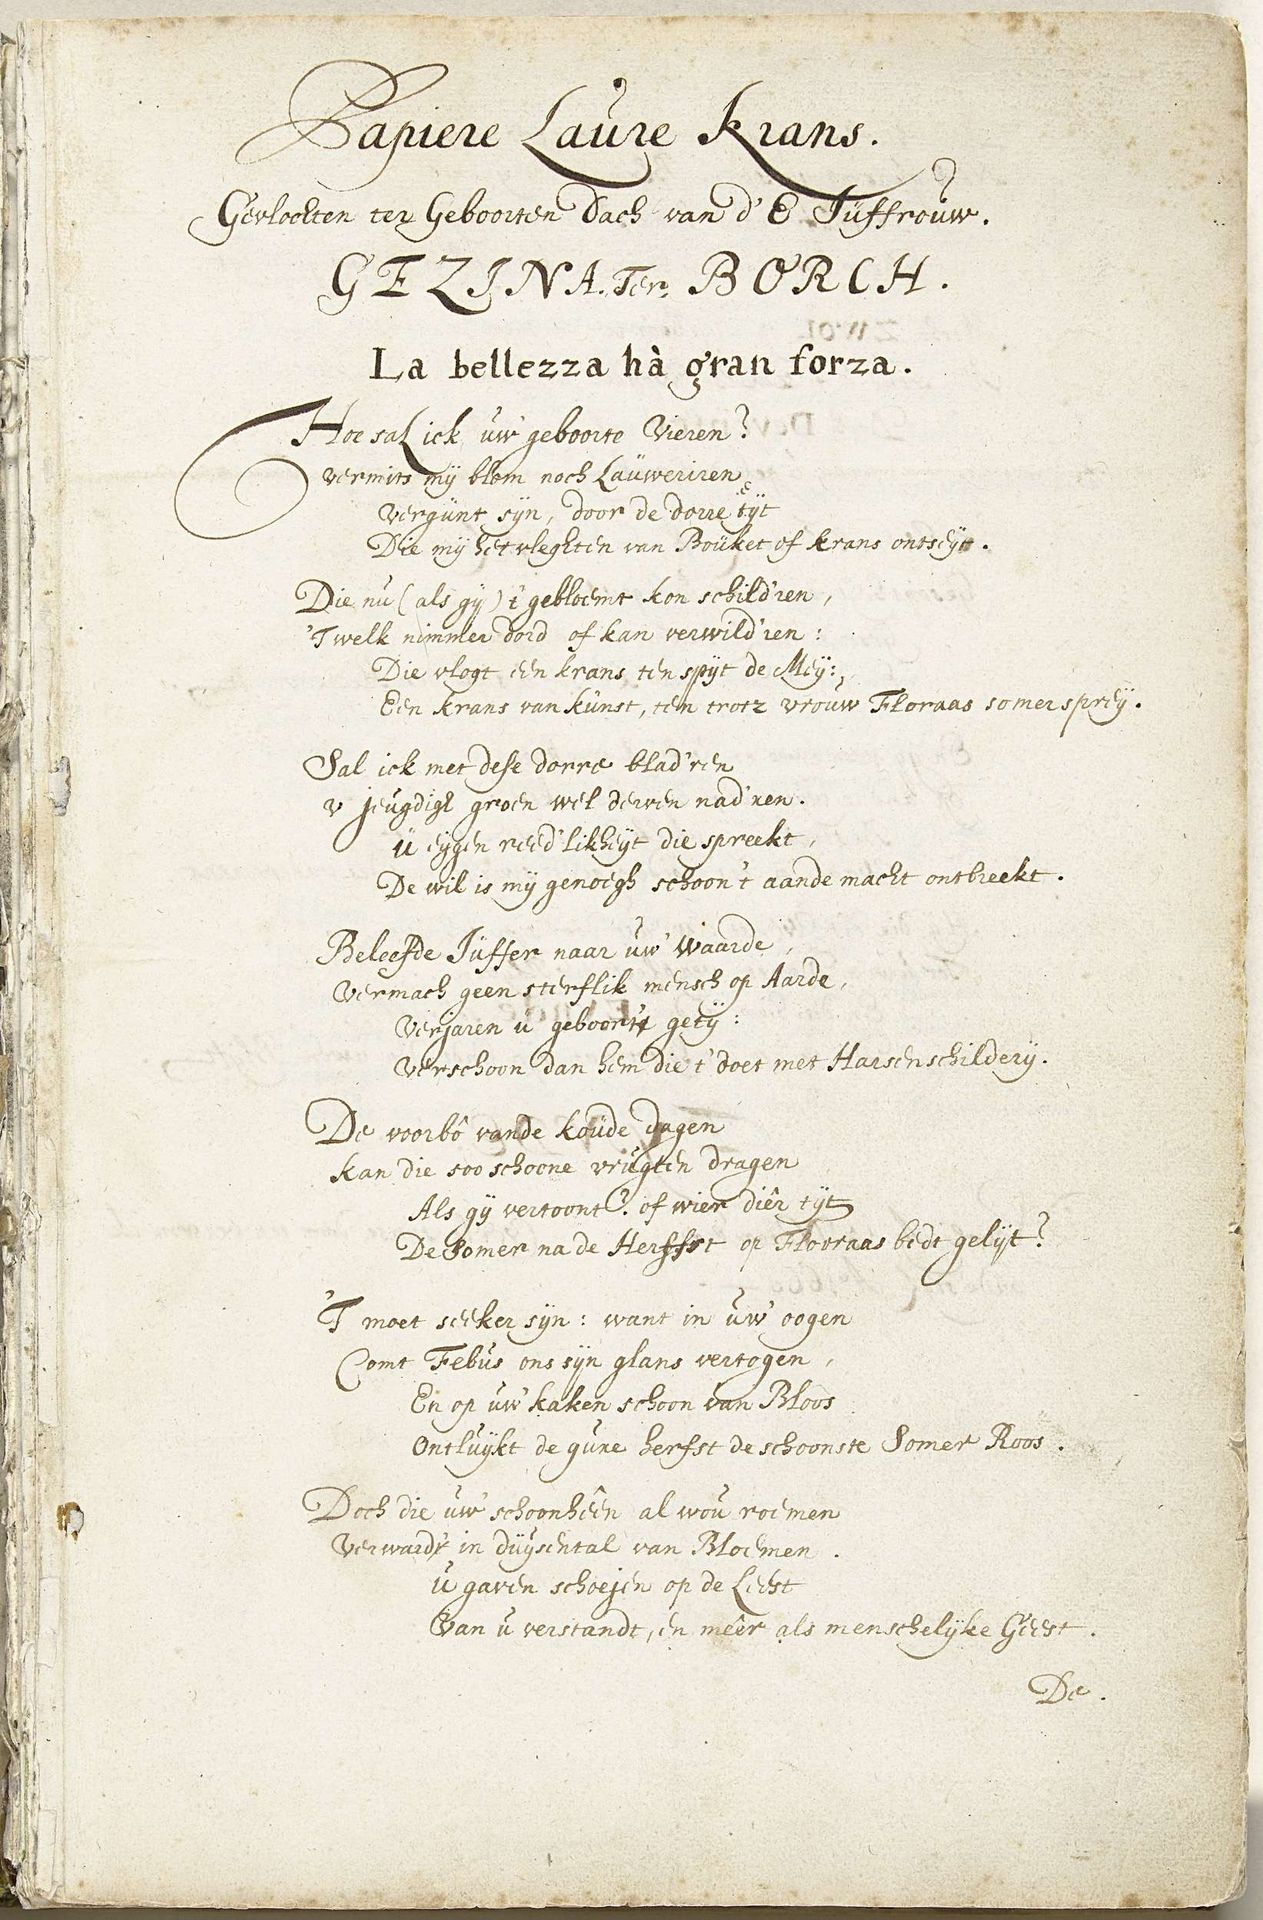 Papiere Laure Krans.
Gevlochten ter Geboorten Dach van d' E Juffrouw.
GEZINA. Ter. BORCH.
La bellezza hà gran forza.
Hoe sal ick uw' geboorte Vieren?
vermits mÿ blom noch Lauwerieren
Vergunt sÿn, door de dorre tÿt
Die mÿ het vleghten van Bouket of krans ontseÿt.
Die nu (als gÿ) 't gebloemt kon schild'ren,
'Twelk nimmer dord of kan verwild'ren:
Die vlogt een krans ten spÿt de Meÿ:,
Een krans van kunst, ten trotz vrouw Floraas somerspreÿ.
Sal ick met dese dorre blad'ren
v jeugdigh groen wel derven nad'ren.
U eÿgen reed'likheÿt die spreekt,
De wil is mÿ genoegh schoon 't aande macht ontbreekt.
Beleefde Juffer naar uw' waarde,
vermach geen sterflik mensch op Aarde,
Verjaren u geboorte getÿ:
Verschoon dan hem die 't doet met Harsenschilderÿ.
De voorbô vande koude dagen
kan die soo schoone vrugten dragen
Als gÿ vertoont? of wier diêr tÿt
De Somer na de Herfst op Flooraas bedt gelÿt?
'T moet seeker sÿn: want in uw' oogen
Comt Febus ons sÿn glans vertogen,
En op uw' kaken schoon van Bloos
Ontluÿkt de gure herfst de schoonste Somer Roos.
Doch die uw' schoonhêên al wou roemen
Verward' in duÿsental van Bloemen.
U gaven schoejen op de Leest
Van u verstandt, en mêêr als menschelÿke Geest.
De.